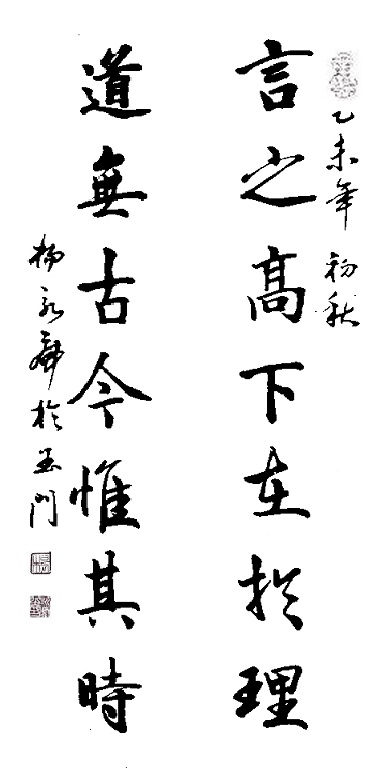 乙未年 初秋
言之高下在於理
道無古今惟其時
永於玉門